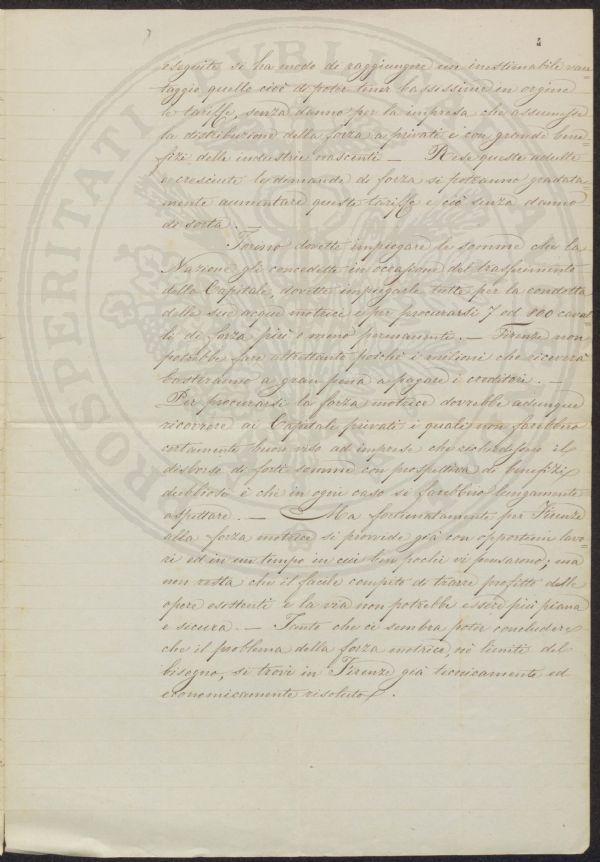 eseguite si ha modo di raggiungere un inestimabile van=
taggio quello cioè di poter tener bassissime in origine
le tariffe, senza danno per la impresa che assumesse
la distribuzione della forza a privati e con grande bene
fizi delle industrie nascenti — Rese queste adulte
e crescente le domande di forza si potranno gradata=
mente aumentare queste tariffe e ciò senza danno
di sorta.
Torino dovette impiegare le somme che la
Nazione gli concedette in occasione del trasferimento
della Capitale, dovette impiegarle tutte per la condotta
delle sue acque motrici e per procurarsi 7 od 800 caval
li di forza più o meno permanente. — Firenze non
potrebbe fare altrettanto poichè i milioni che riceverà
basteranno a gran pena a pagare i creditori. —
Per procurarsi la forza motrice dovrebbe adunque
ricorrere ai Capitali privati i quali non farebbero
certamente buon viso ad imprese che richiedessero il
disborso di forti somme con prospettiva di benefizi
dubbiosi e che in ogni caso si farebbero lungamente
aspettare. — Ma fortunatamente per Firenze
alla forza motrice si provvide già con opportuni lavo
ri ed in un tempo in cui ben pochi vi pensarono; ma
non resta che il facile compito di trarre profitto delle
opere esistenti e la via non potrebbe essere più piana
e sicura. — Tanto che ci sembra poter concludere
che il problema della forza motrice, nei limiti del
bisogno, si trovi in Firenze già tecnicamente ed
economicamente risoluto.
PROSPERITATI PUBLICAE